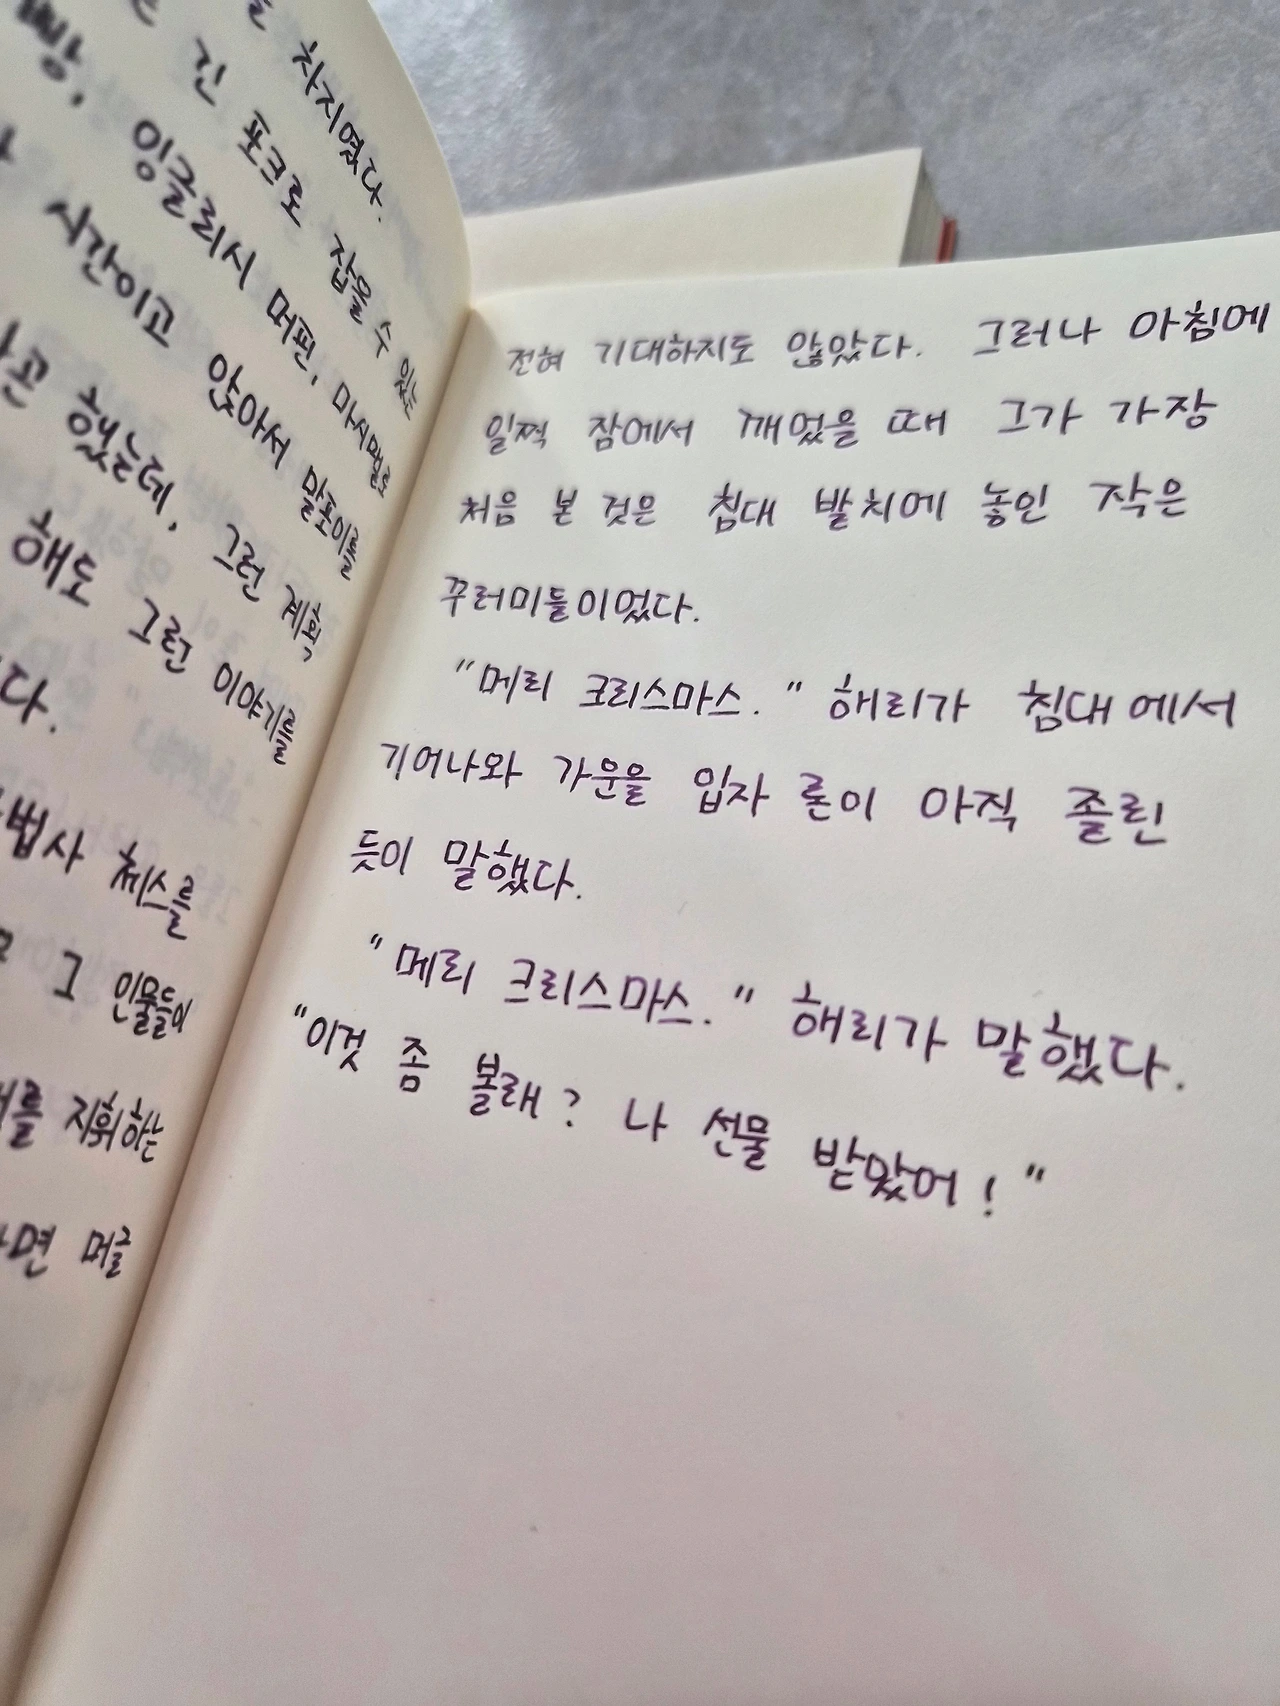 차지였다.
긴 포크로 잡을 수 있는
잉글리시 머핀, 마시멜로
시간이고 앉아서 말포이를
했는데, 그런 계획
해도 그런 이야기를
다.
법사 체스를
그 인물들이
를 지휘하는
면 머글
전혀 기대하지도 않았다. 그러나 아침에
일찍 잠에서 깨었을 때 그가 가장
처음 본 것은 침대 발치에 놓인 작은
꾸러미들이었다.
"메리 크리스마스." 해리가 침대에서
기어나와 가운을 입자 론이 아직 졸린
듯이 말했다.
"메리 크리스마스." 해리가 말했다.
"이것 좀 볼래? 나 선물 받았어!"